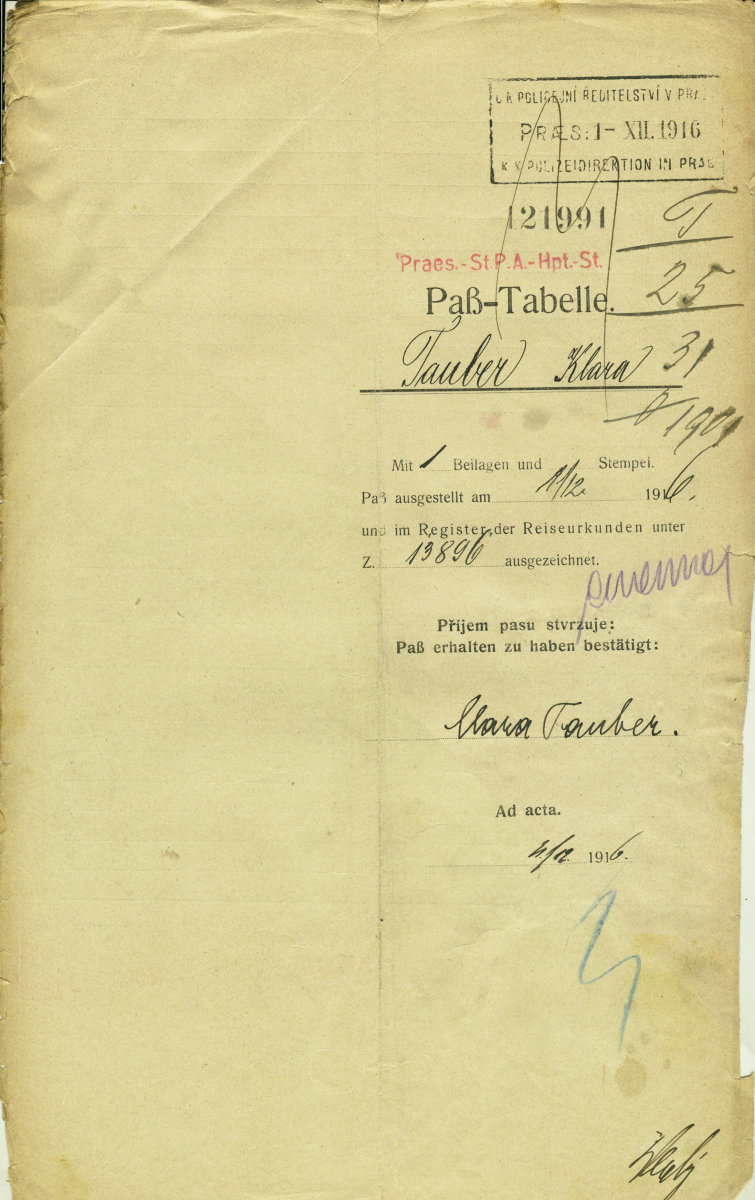 C. K. POLICEJNÍ ŘEDITELSTVÍ V PRA
PRÆS: 1- XII. 1916
K. K. POLIZEIDIREKTION IN PRAG
121991
T
Praes.-St.P.A.-Hpt.-St.
25
Paß-Tabelle.
Tauber Klara
31
1901
Mit 1 Beilagen und Stempel.
Paß ausgestellt am 1/12. 1916.
und im Register der Reiseurkunden unter
Z. 13896 ausgezeichnet.
Příjem pasu stvrzuje:
Paß erhalten zu haben bestätigt:
Clara Tauber.
Ad acta.
1916.